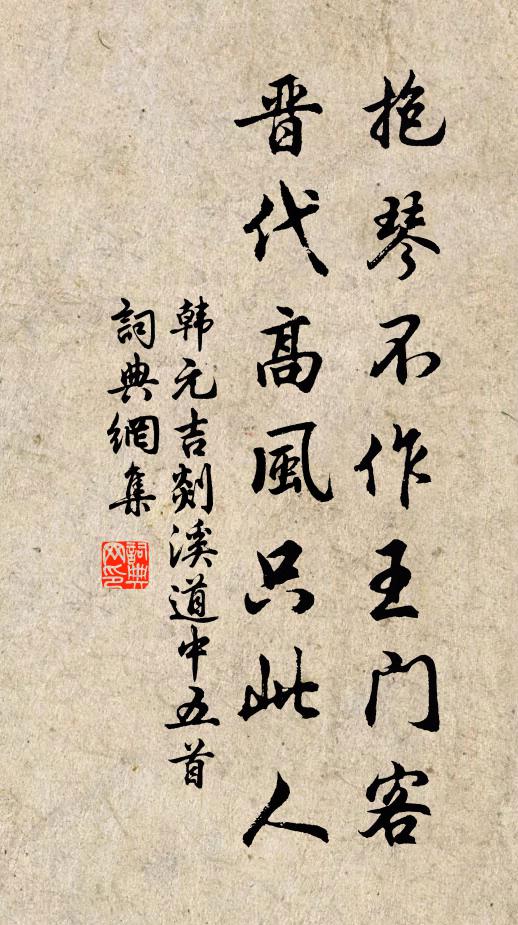 抱琴不作王门客
晋代高風只此人
韩元吉剡溪道中五首
詞典網集
詞典网印